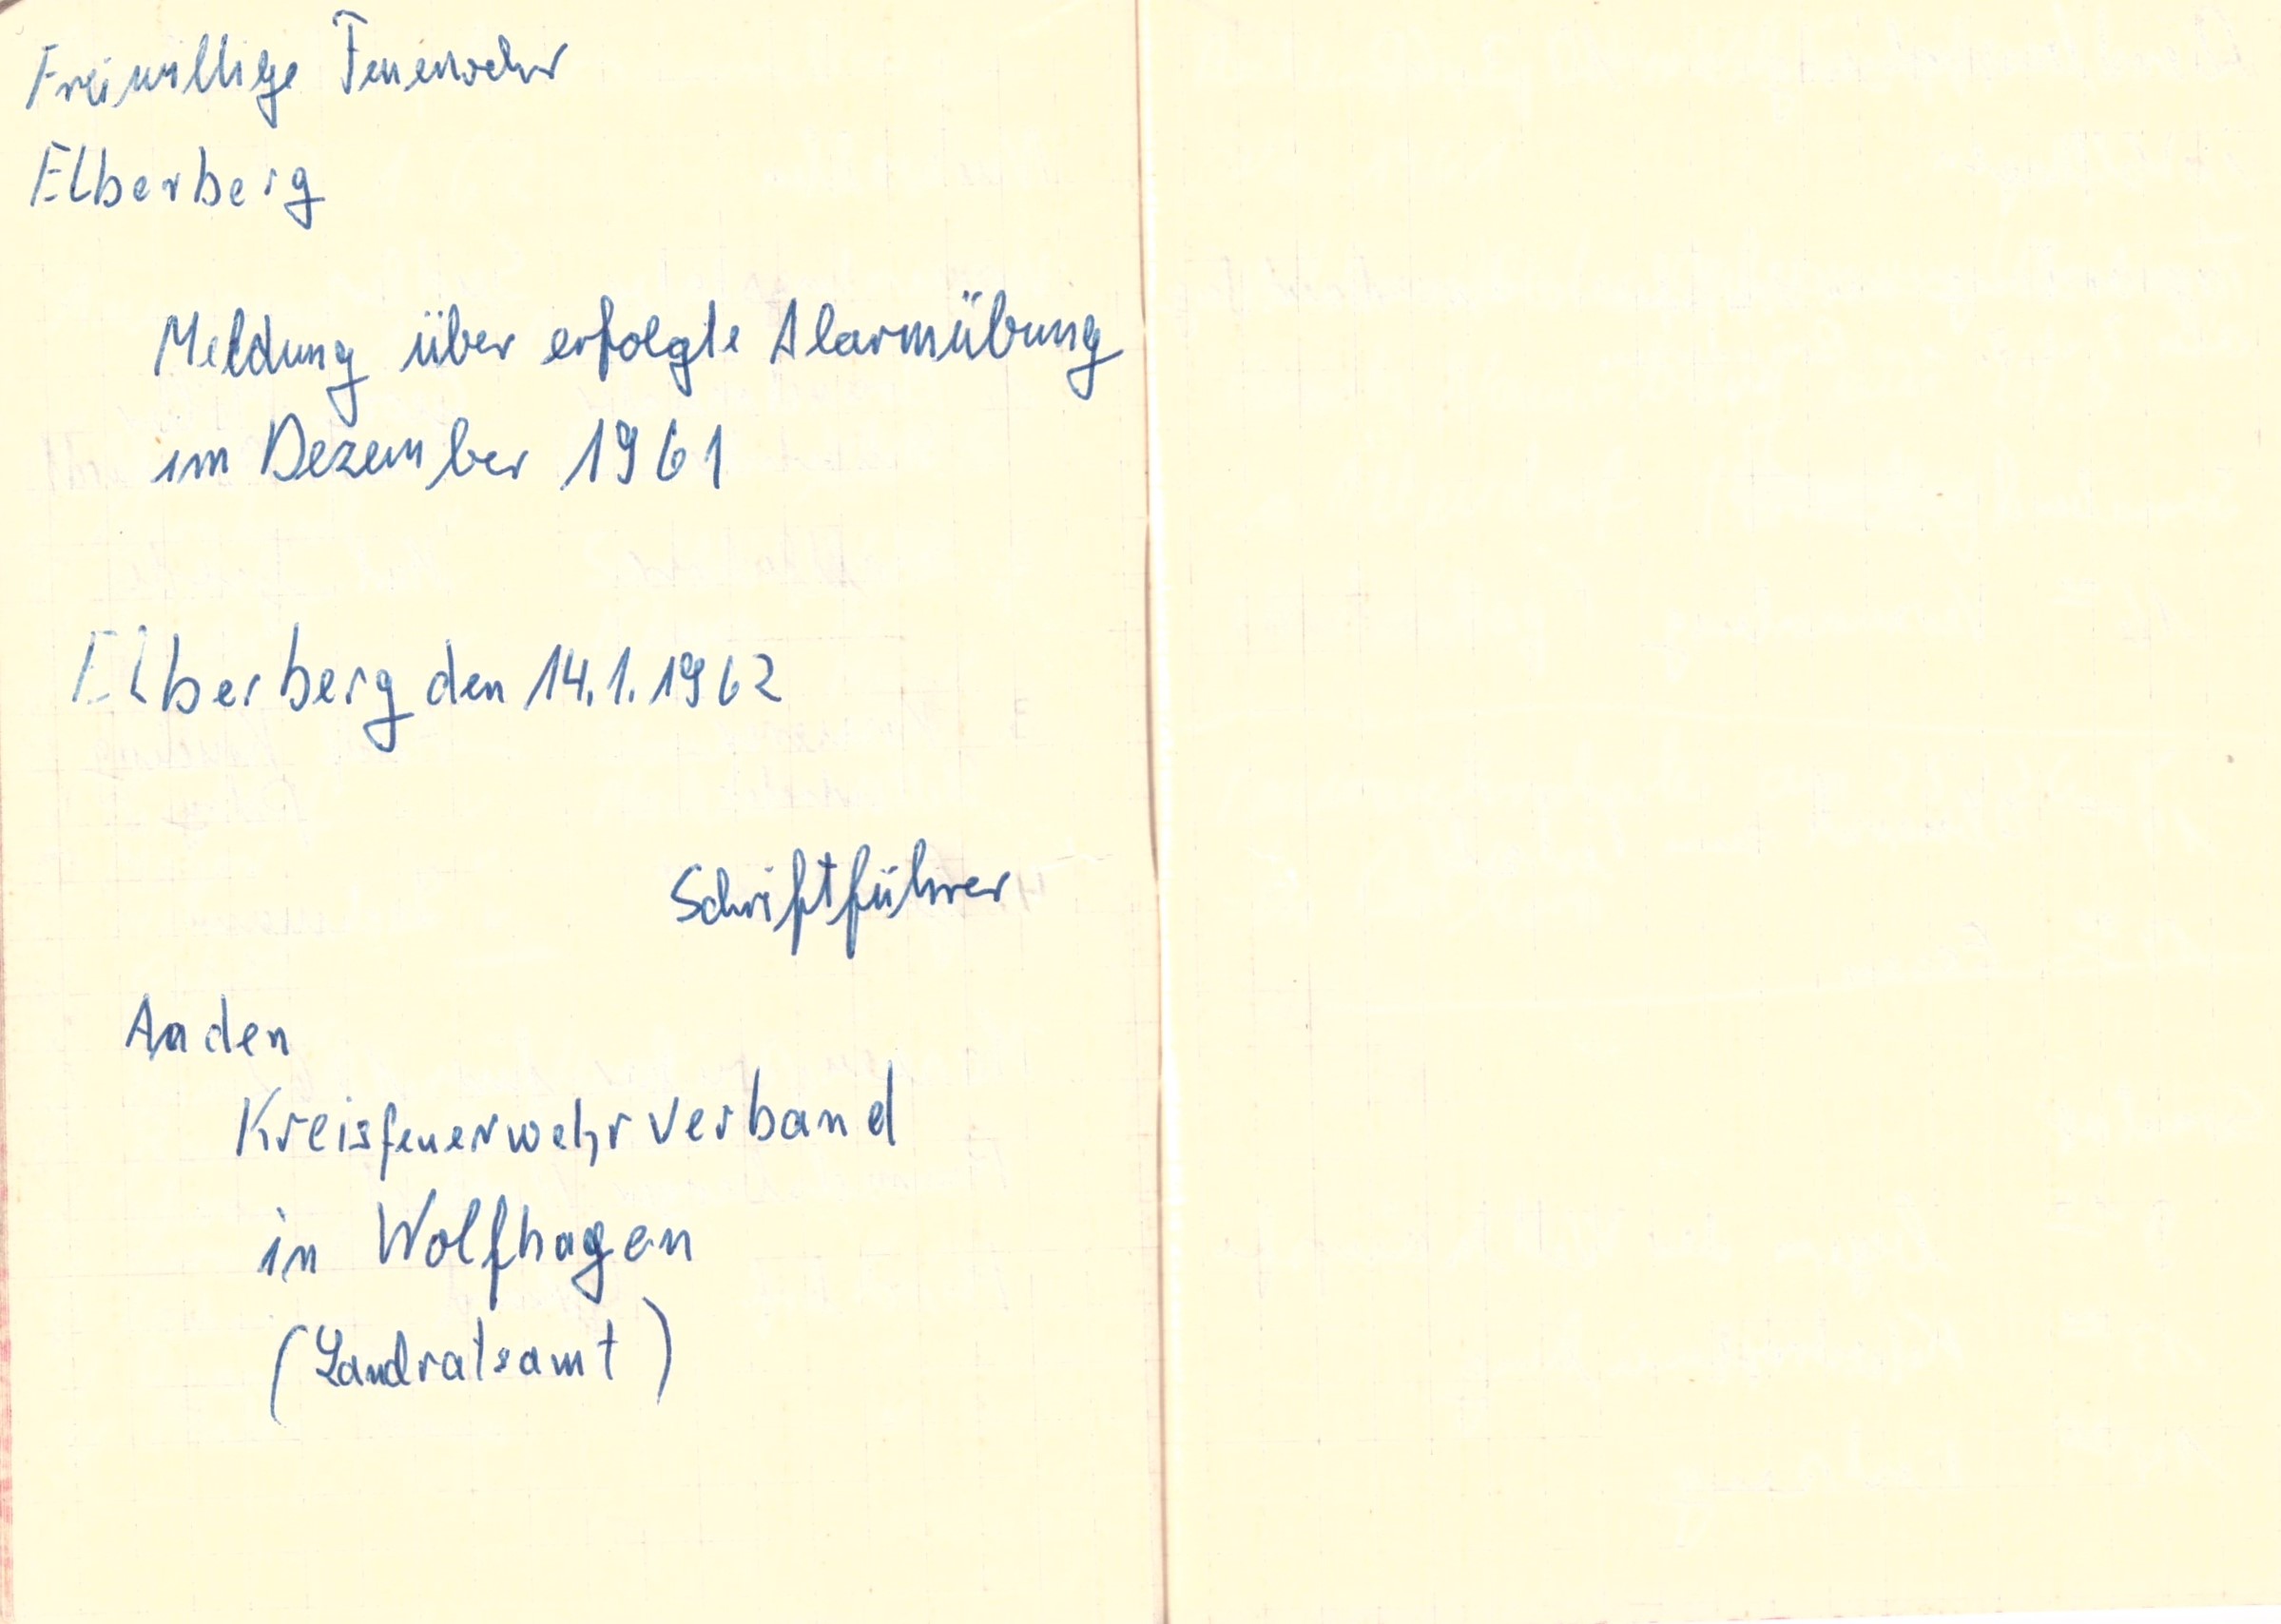 Freiwillige Feuerwehr
Elberberg
Meldung über erfolgte Alarmübung
im Dezember 1961
Elberberg den 14.1.1962
Schriftführer
An den
Kreisfeuerwehrverband
in Wolfhagen
(Landratsamt)